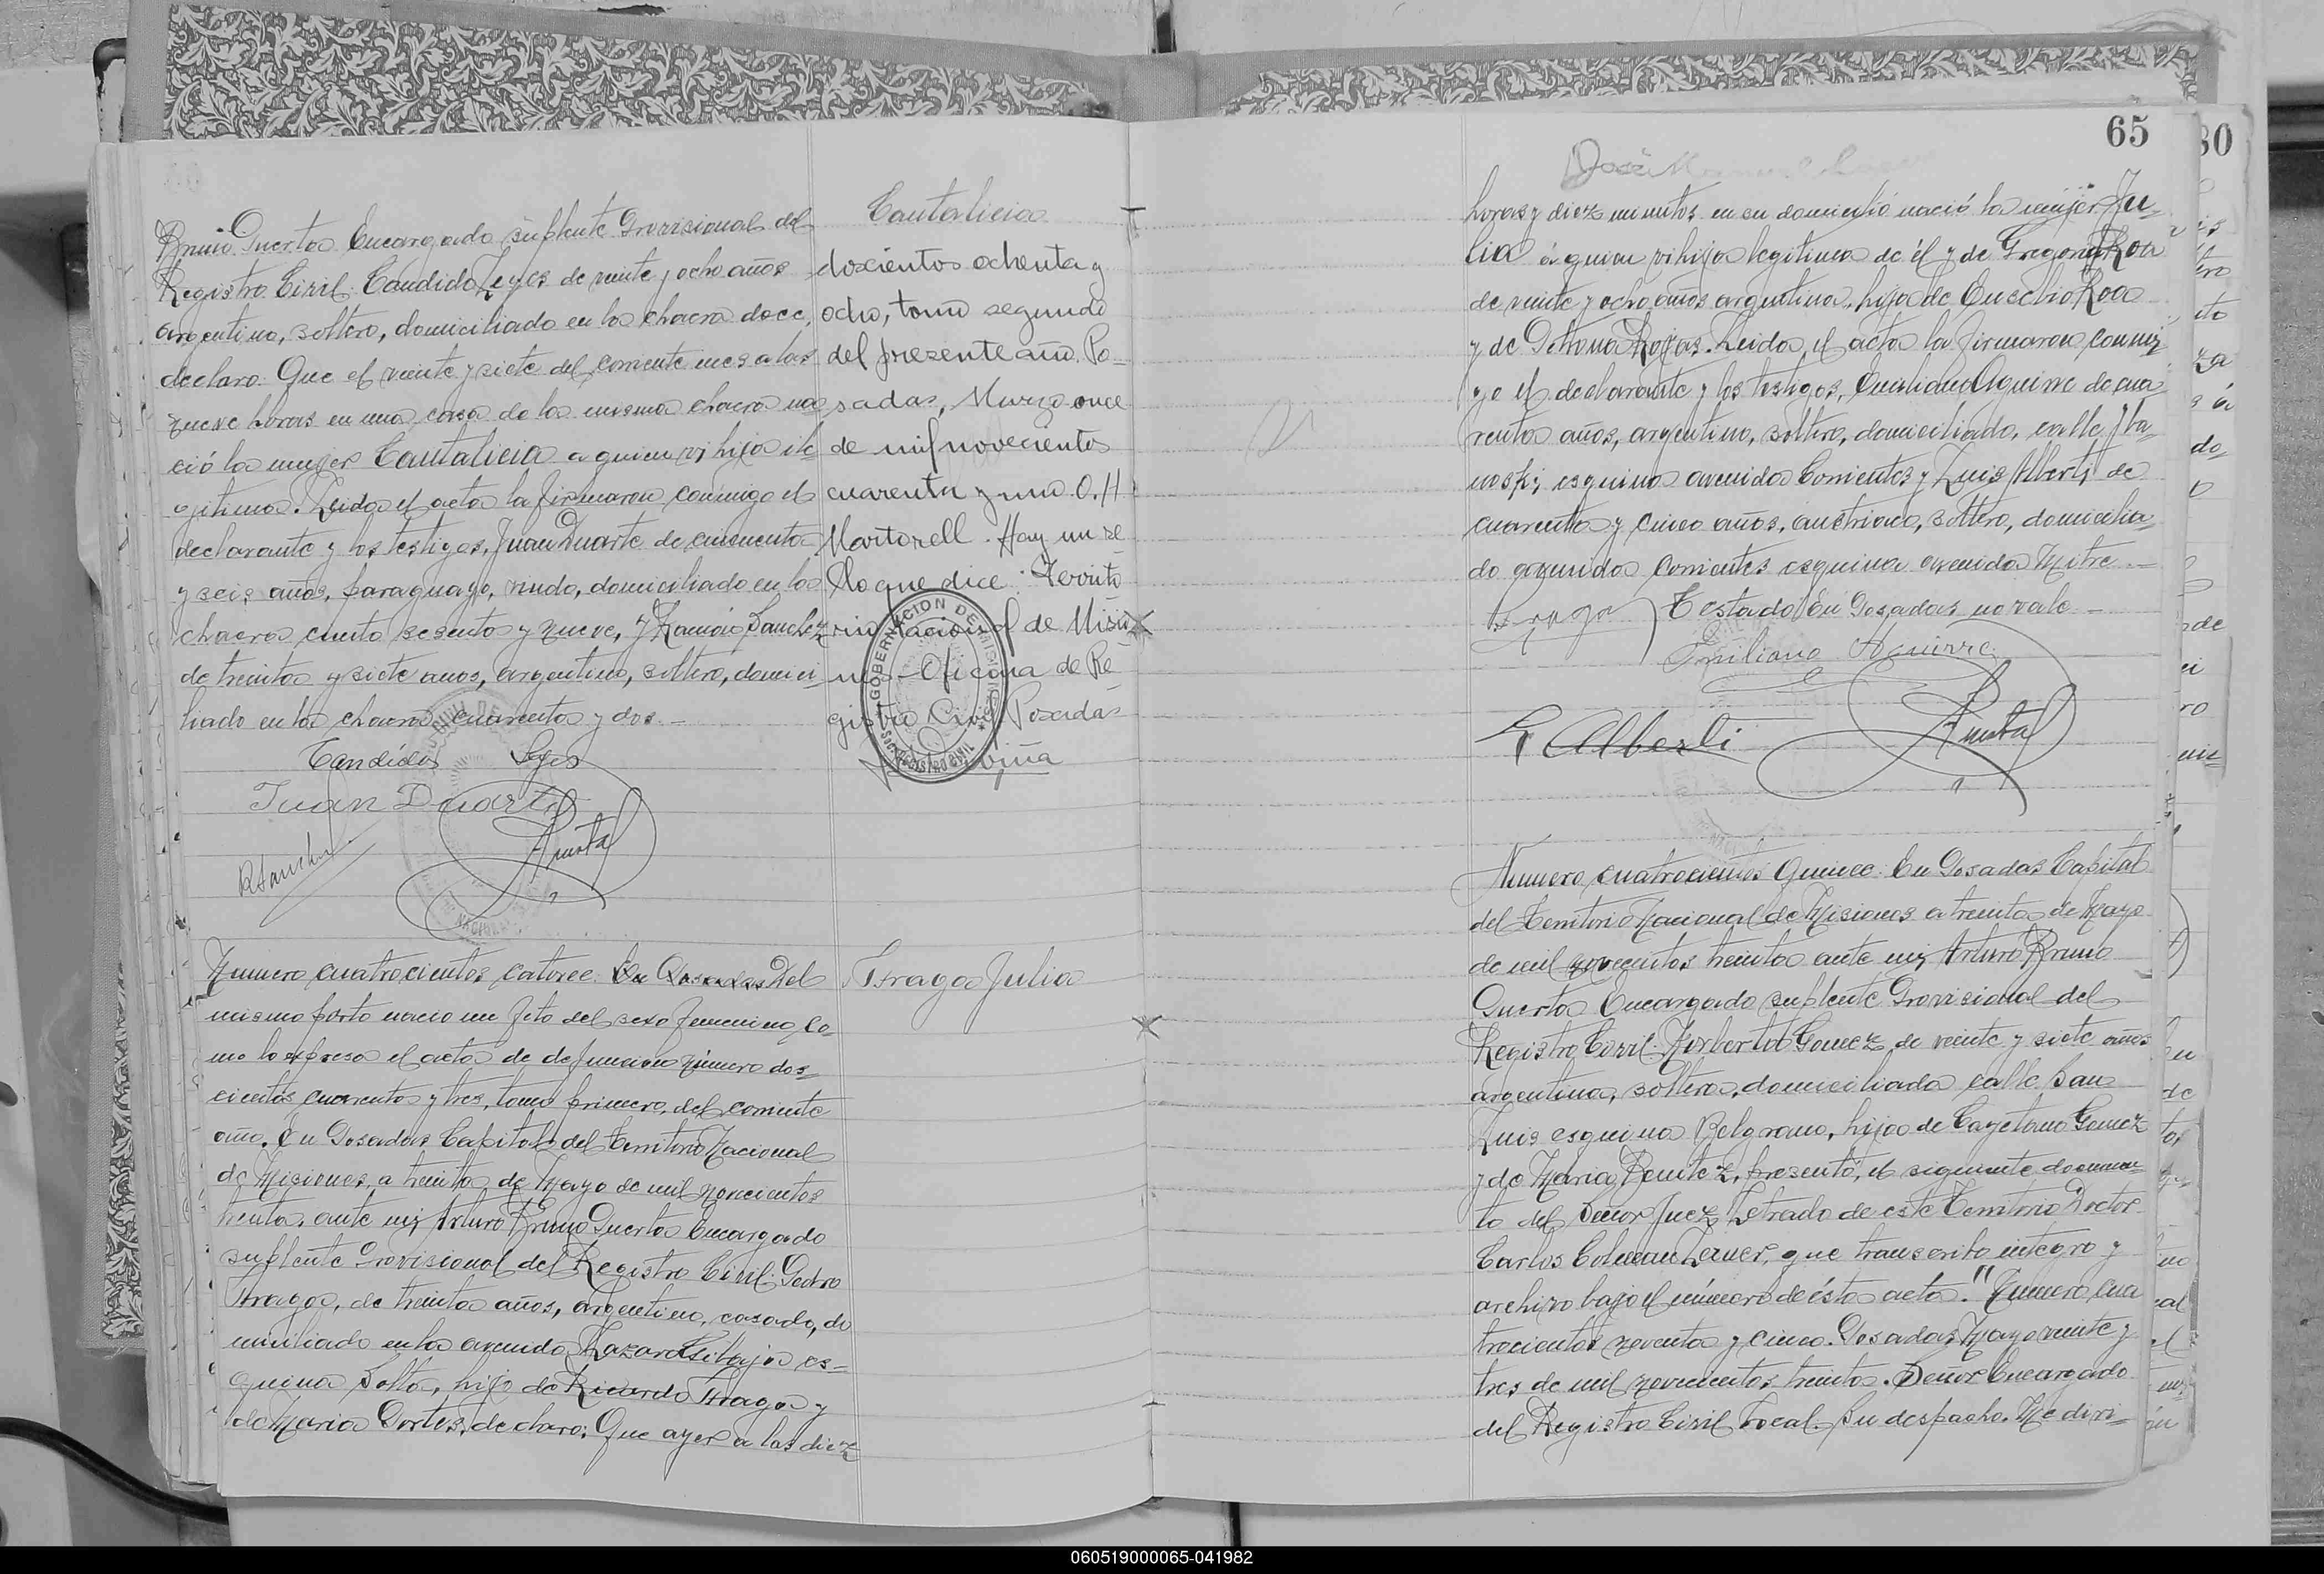 Bruno Puerta Encargado suplente Provisional del
Registro Civil: Candido Leyes de veinte y ocho años
argentino, soltero, domiciliado en la chacra doce,
declaro: Que el veinte y siete del corriente mes a las
nueve horas en una casa de la misma chacra na=
ció la mujer Cantalicia a quien vi hija ile=
gitima. Leida el acta la firmaron conmigo el
declarante y los testigos, Juan Duarte de cincuenta
y seis años, paraguayo, viudo, domiciliado en la
chacra ciento sesenta y nueve, y Ramón Sanchez
de treinta y siete años, argentino, soltero, domici-
liado en la chacra cuarenta y dos.-
Candido Leyes
Juan Duarte
RSanchez
Puerta
Cantalicia
doscientos ochenta y
ocho, tomo segundo
del presente año. Po-
sadas, Marzo once
de mil novecientos
cuarenta y uno. O. H.
Martorell. Hay un se-
llo que dice: Territo
rio Nacional de Misio
nes - Oficina de Re-
gistro Civil Posadas
GOBERNACION DE MISIONES
REGISTRO CIVIL
Numero cuatrocientos catorce: En Posadas Del
mismo parto nacio un feto del sexo femenino, co-
mo lo expresa el acta de defuncion número dos=
cientos cuarenta y tres, tomo primero, del corriente
año. En Posadas Capital del Territorio Nacional
de Misiones, a treinta de Mayo de mil novecientos
treinta, ante mi, Arturo Bruno Puerta Encargado
suplente Provisional del Registro Civil: Pedro
Fraga, de treinta años, argentino, casado, do
miciliado en la avenida Lazaro Gibaja es=
quina Salta, hijo de Ricardo Fraga y
de Maria Portes, declaro: Que ayer a las diez
Fraga Julia
65
30
José Manuel
horas y diez minutos en su domicilio nació la mujer Ju=
lia á quien vi hija legitima de él y de Gregoria Roa
de veinte y ocho años argentina, hija de Eusebio Roa
y de Petrona Rojas. Leida el acta la firmaron conmi=
go el declarante y los testigos, Emiliano Aguirre de cua=
renta años, argentino, soltero, domiciliado, calle
esquina avenida Corrientes y Luis Alberti de
cuarenta y cinco años, austriaco, soltero, domicilia=
do avenida Corrientes esquina avenida Mitre.-
Testado: En Posadas no vale-
Emiliano Aguirre
L Alberti
Puerta
Numero cuatrocientos Quince: En Posadas Capital
del Territorio Nacional de Misiones a treinta de Mayo
de mil novecientos treinta ante mi, Arturo Bruno
Puerta Encargado suplente Provisional del
Registro Civil: Norberta Gomez de veinte y siete años
argentina, soltera, domiciliada calle San
Luis esquina Belgrano, hija de Cayetano Gomez
y de Maria Benitez, presentó, el siguiente documen
to del Señor Juez Letrado de este Territorio Doctor
Carlos Colman Lerner, que transcrito integro y
archivo bajo el número de ésta acta: "Numero cua
trocientos noventa y cinco. Posadas, Mayo veinte y
tres de mil novecientos treinta. Señor Encargado
del Registro Civil Local. Su despacho. Me diri=
060519000065-041982